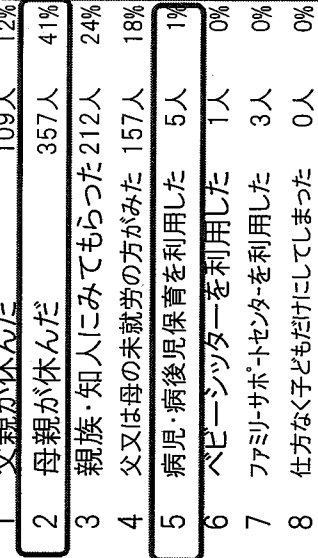 1 父親が休んだ 109人 12%
2 母親が休んだ 357人 41%
3 親族・知人にみてもらった 212人 24%
4 父又は母の未就労の方がみた 157人 18%
5 病児・病後児保育を利用した 5人 1%
6 ベビーシッターを利用した 1人 0%
7 ファミリーサポートセンターを利用した 3人 0%
8 仕方なく子どもだけにしてしまった 0人 0%